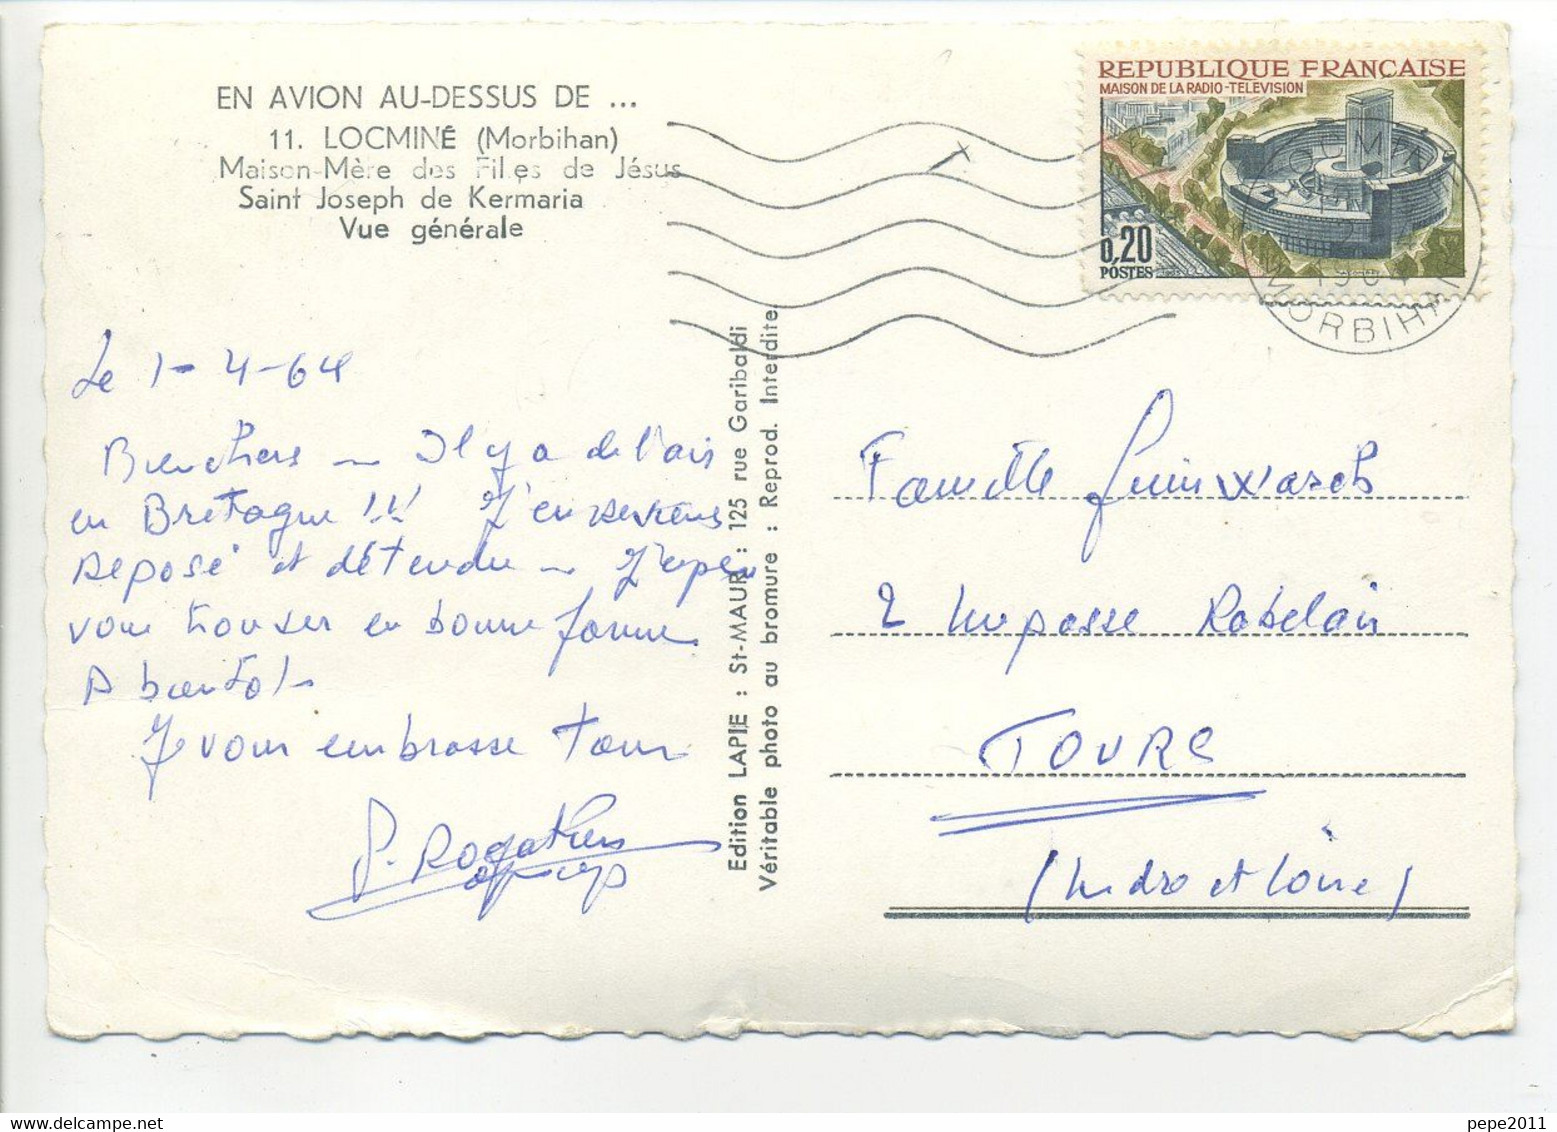 EN AVION AU-DESSUS DE ...
11. LOCMINÉ (Morbihan)
Maison-Mère des Filles de Jésus
Saint Joseph de Kermaria
Vue générale
REPUBLIQUE FRANÇAISE
MAISON DE LA RADIO-TELEVISION
0,20
POSTES
LOCMINE
MORBIHAN
Le 1-4-64
Bien chers _ Il y a de l'air
en Bretagne !!! J'en reviens
reposé et détendu _ J'espère
vous trouver en bonne forme
A bientôt
Je vous embrasse tous
Edition LAPIE : St-MAUR : 125 rue Garibaldi
Véritable photo au bromure : Reprod. Interdite
Famille
2 Impasse Rabelais
TOURS
(Indre et Loire)
pepe2011